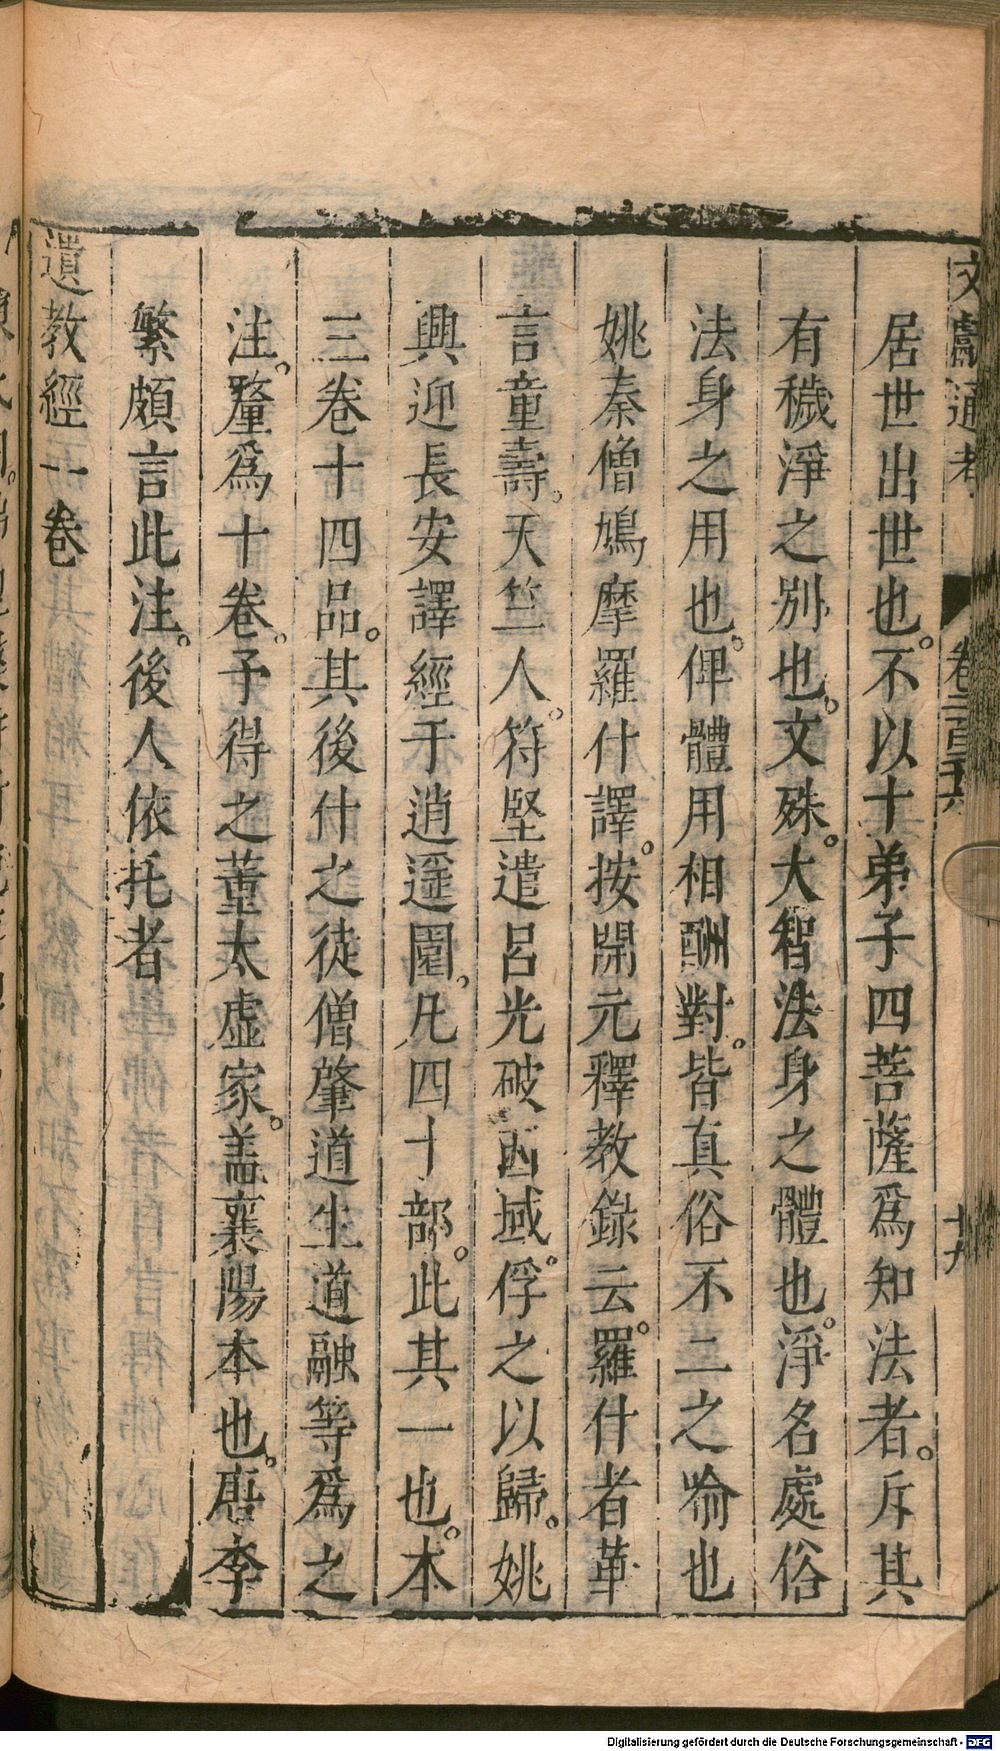 文獻通考 卷二百二十六 十九
居世出世也。不以十弟子四菩薩爲知法者。斥其
有穢淨之別也。文殊。大智法身之體也。淨名處俗
法身之用也。俾體用相酬對。皆真俗不二之喻也
姚秦僧鳩摩羅什譯。按開元釋教錄云。羅什者華
言童壽。天竺人。符堅遣呂光破西域。俘之以歸。姚
興迎長安譯經于逍遥園。凡四十部。此其一也。本
三卷十四品。其後什之徒僧肇道生道融等爲之
注。釐爲十卷。予得之董太虛家。盖襄陽本也。唐李
繁頗言此注。後人依托者
遺教經一卷
Digitalisierung gefördert durch die Deutsche Forschungsgemeinschaft - DFG